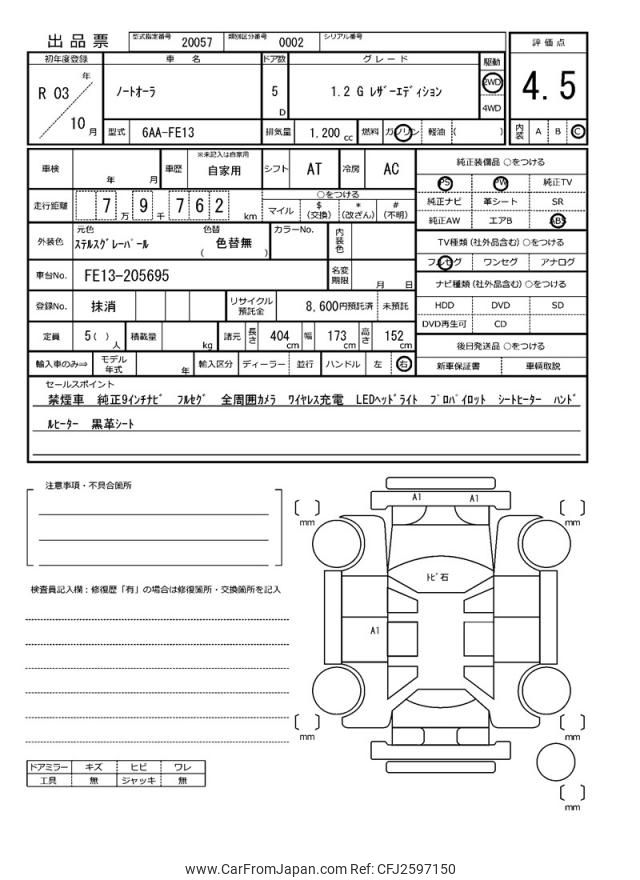 出品票 型式指定番号 20057 類別区分番号 0002 シリアル番号
評価点
4.5
内装 A B C
初年度登録 車名 ドア数 グレード 駆動
R 03 年 10 月
ノートオーラ 5 D 1.2 G レザーエディション 2WD 4WD
型式 6AA-FE13 排気量 1,200 cc 燃料 ガソリン 軽油 ( )
車検 年 月 車歴 ※未記入は自家用 自家用 シフト AT 冷房 AC
走行距離 7 万 9 千 7 6 2 km ○をつける マイル $(交換) *(改ざん) #(不明)
外装色 元色 ステルスグレーパール 色替 色替無 ( ) カラーNo. 内装色
車台No. FE13-205695 名変期限 月 日
登録No. 抹消 リサイクル預託金 8,600円預託済 未預託
定員 5( )人 積載量 kg 諸元 長さ 404 cm 幅 173 cm 高さ 152 cm
輸入車のみ⇒ モデル年式 年 輸入区分 ディーラー 並行 ハンドル 左 右
純正装備品 ○をつける
PS PW 純正TV
純正ナビ 革シート SR
純正AW エアB ABS
TV種類 (社外品含む) ○をつける
フルセグ ワンセグ アナログ
ナビ種類 (社外品含む) ○をつける
HDD DVD SD
DVD再生可 CD
後日発送品 ○をつける
新車保証書 車輌取説
セールスポイント
禁煙車 純正9インチナビ フルセグ 全周囲カメラ ワイヤレス充電 LEDヘッドライト プロパイロット シートヒーター ハンド
ルヒーター 黒革シート
注意事項・不具合箇所
検査員記入欄：修復歴「有」の場合は修復箇所・交換箇所を記入
ドアミラー キズ ヒビ ワレ
工具 無 ジャッキ 無
A1 A1
mm mm
トビ石
A1
mm mm
mm
www.CarFromJapan.com Ref: CFJ2597150